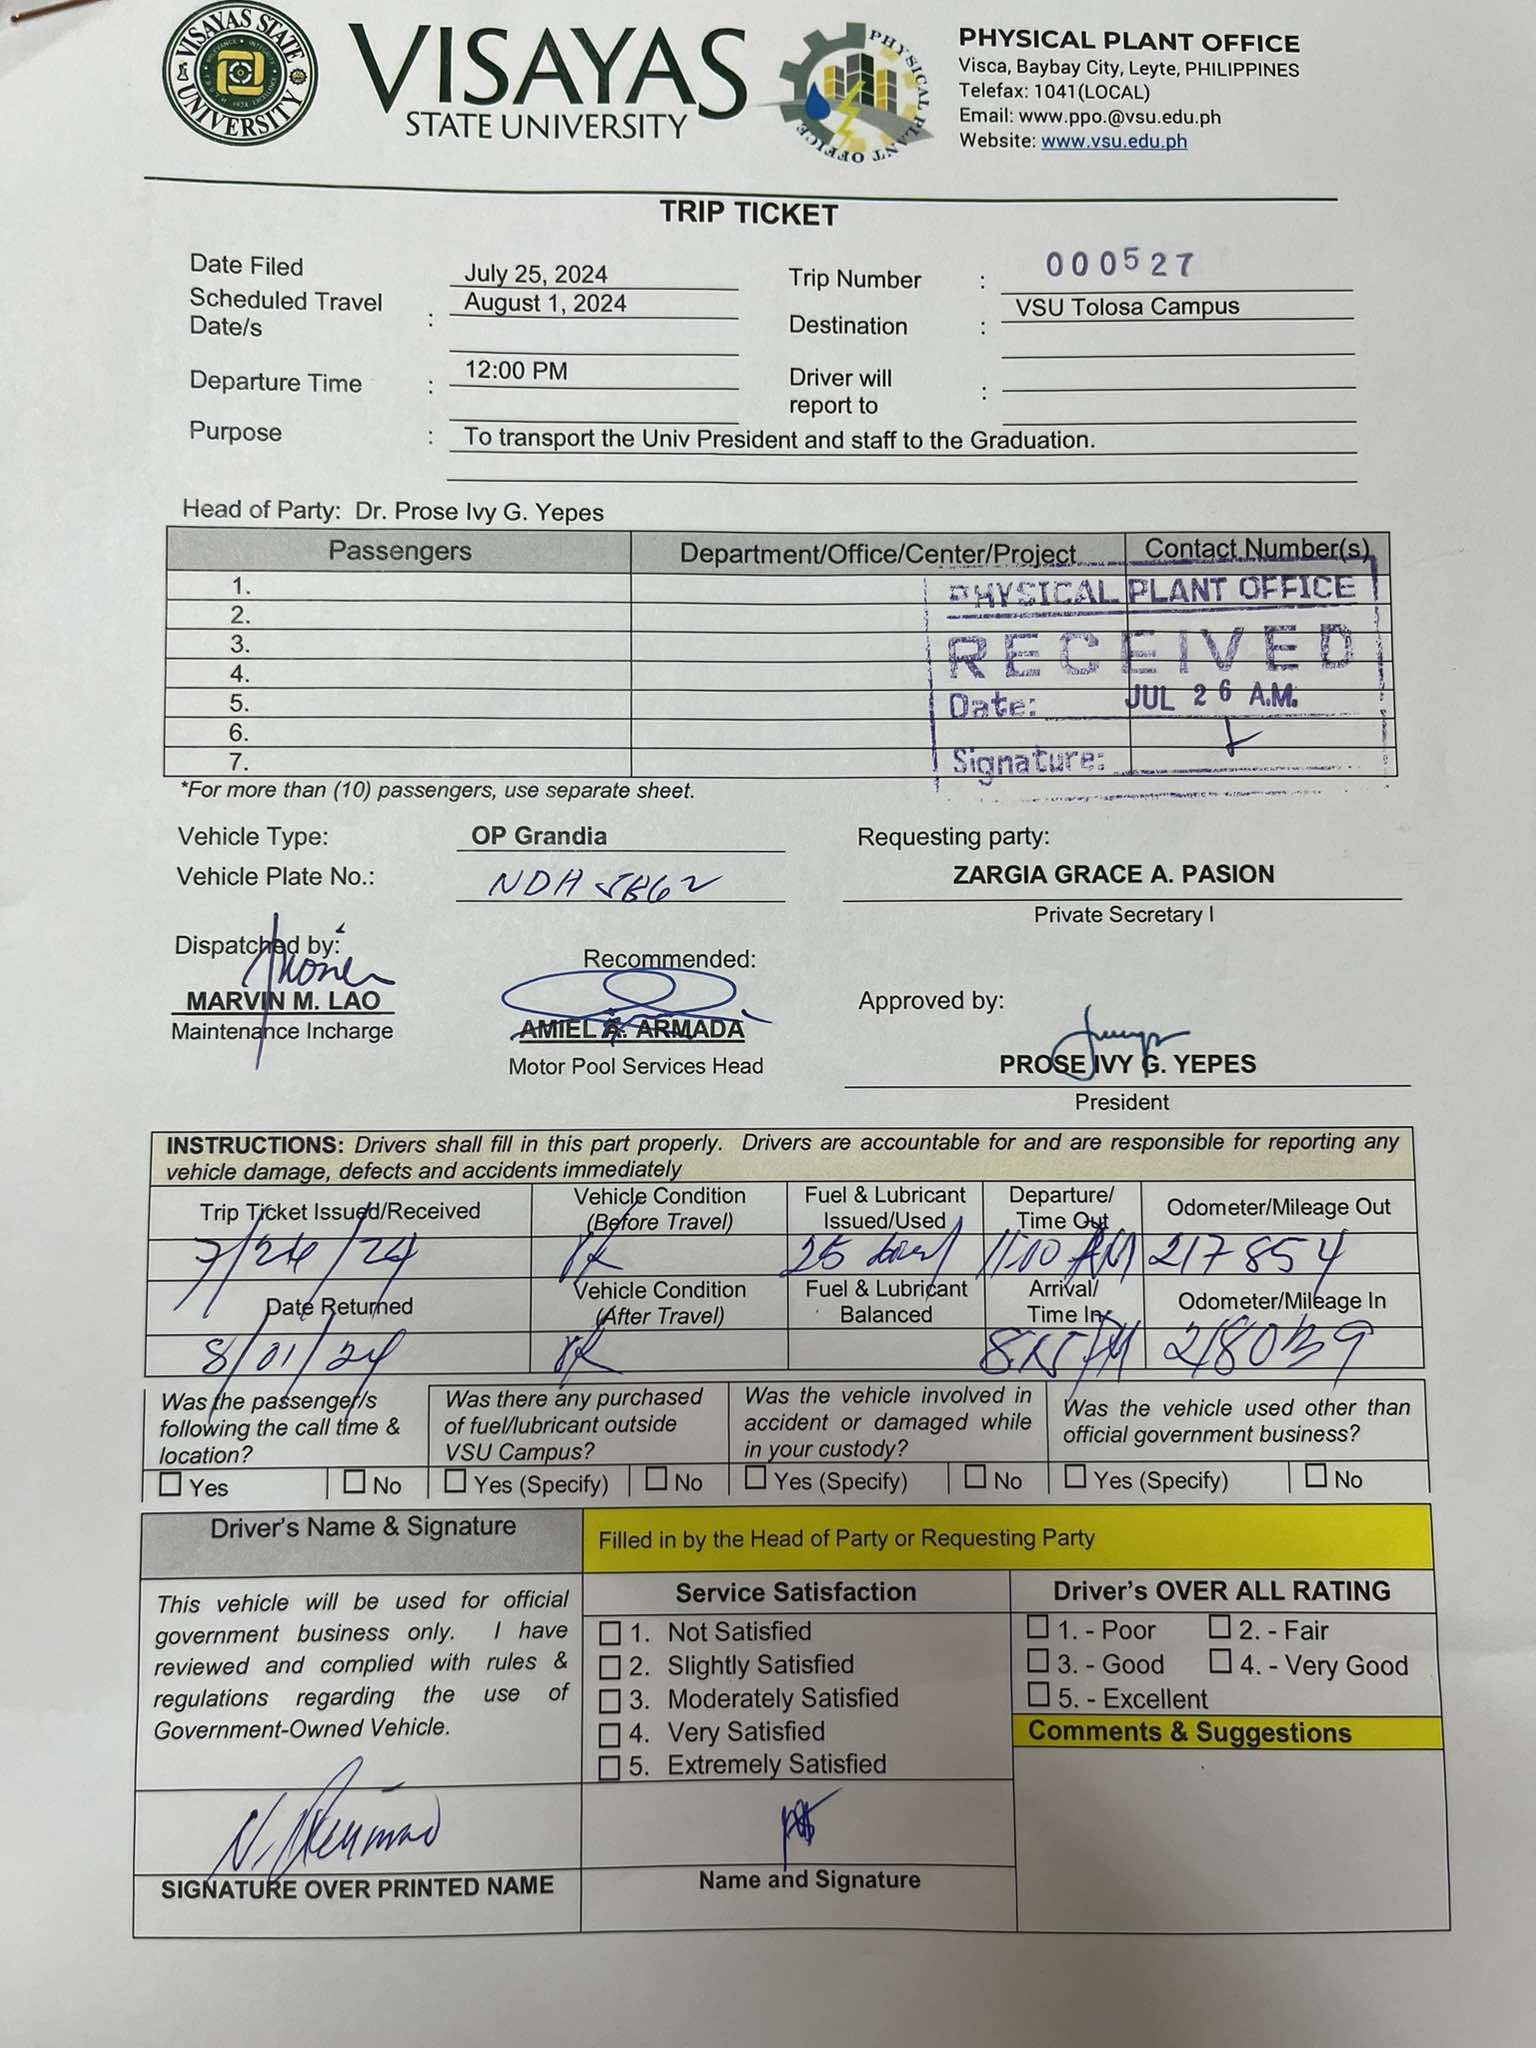 VISAYAS STATE UNIVERSITY
VISAYAS
STATE UNIVERSITY
PHYSICAL PLANT OFFICE
PHYSICAL PLANT OFFICE
Visca, Baybay City, Leyte, PHILIPPINES
Telefax: 1041(LOCAL)
Email: www.ppo.@vsu.edu.ph
Website: www.vsu.edu.ph
TRIP TICKET
Date Filed July 25, 2024 Trip Number : 000527
Scheduled Travel Date/s : August 1, 2024 Destination : VSU Tolosa Campus
Departure Time : 12:00 PM Driver will report to :
Purpose : To transport the Univ President and staff to the Graduation.
Head of Party: Dr. Prose Ivy G. Yepes
Passengers Department/Office/Center/Project Contact Number(s)
1.
2.
3.
4.
5.
6.
7.
PHYSICAL PLANT OFFICE
RECEIVED
Date: JUL 26 A.M.
Signature:
*For more than (10) passengers, use separate sheet.
Vehicle Type: OP Grandia Requesting party:
Vehicle Plate No.: NDH ZARGIA GRACE A. PASION
Private Secretary I
Dispatched by: Recommended:
Approved by:
MARVIN M. LAO AMIEL A. ARMADA
Maintenance Incharge Motor Pool Services Head
PROSE IVY G. YEPES
President
INSTRUCTIONS: Drivers shall fill in this part properly. Drivers are accountable for and are responsible for reporting any
vehicle damage, defects and accidents immediately
Trip Ticket Issued/Received Vehicle Condition (Before Travel) Fuel & Lubricant Issued/Used Departure/ Time Out Odometer/Mileage Out
7/26/24 25 11:10 AM 217854
Date Returned Vehicle Condition (After Travel) Fuel & Lubricant Balanced Arrival/ Time In Odometer/Mileage In
8/01/24
Was the passenger/s following the call time & location?
Was there any purchased of fuel/lubricant outside VSU Campus?
Was the vehicle involved in accident or damaged while in your custody?
Was the vehicle used other than official government business?
Yes No Yes (Specify) No Yes (Specify) No Yes (Specify) No
Driver's Name & Signature Filled in by the Head of Party or Requesting Party
This vehicle will be used for official
government business only. I have
reviewed and complied with rules &
regulations regarding the use of
Government-Owned Vehicle.
SIGNATURE OVER PRINTED NAME
Service Satisfaction
1. Not Satisfied
2. Slightly Satisfied
3. Moderately Satisfied
4. Very Satisfied
5. Extremely Satisfied
Name and Signature
Driver's OVER ALL RATING
1. - Poor 2. - Fair
3. - Good 4. - Very Good
5. - Excellent
Comments & Suggestions